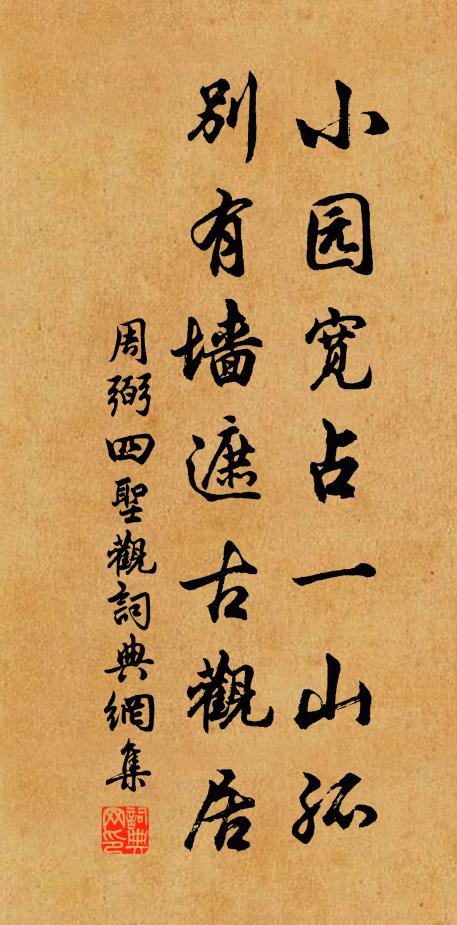 小园宽占一山孤
别有墙遮古觀居
周弼四聖觀詞典網集
詞典网印